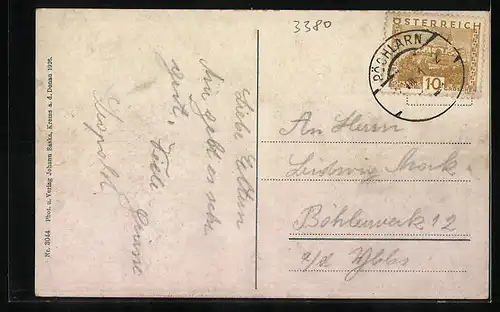 3380
ÖSTERREICH
PÖCHLARN
10
Liebe Eltern
Mir geht es sehr
gut. Viele Grüsse
Leopold
An Herrn
Ludwig Mark
Böhlerwerk 12
a/d Ybbs
Nr. 3044 Phot. u. Verlag Johann Saska, Krems a. d. Donau 1926.